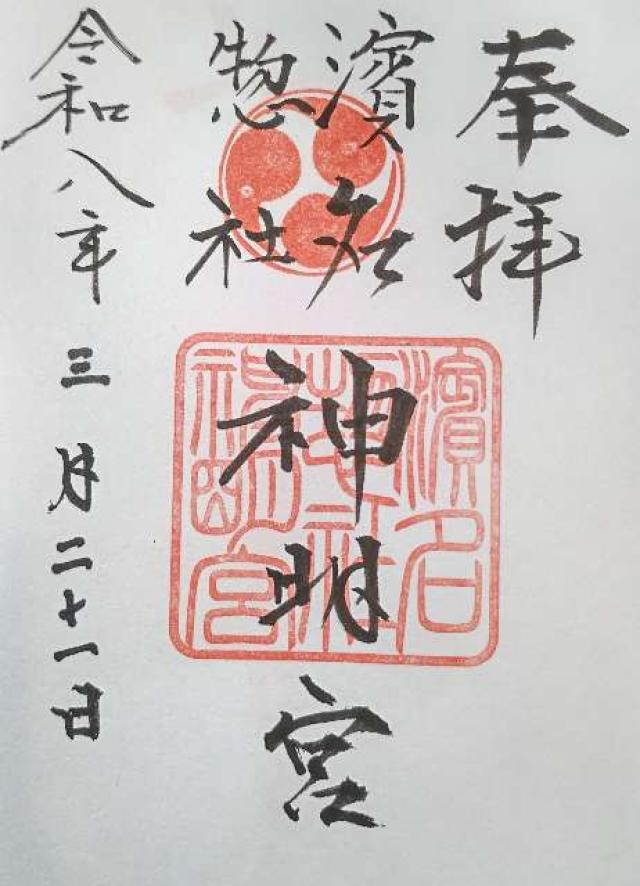 奉拝
濱名
惣社
神明宮
濱名
惣社
神明宮
令和八年三月二十一日